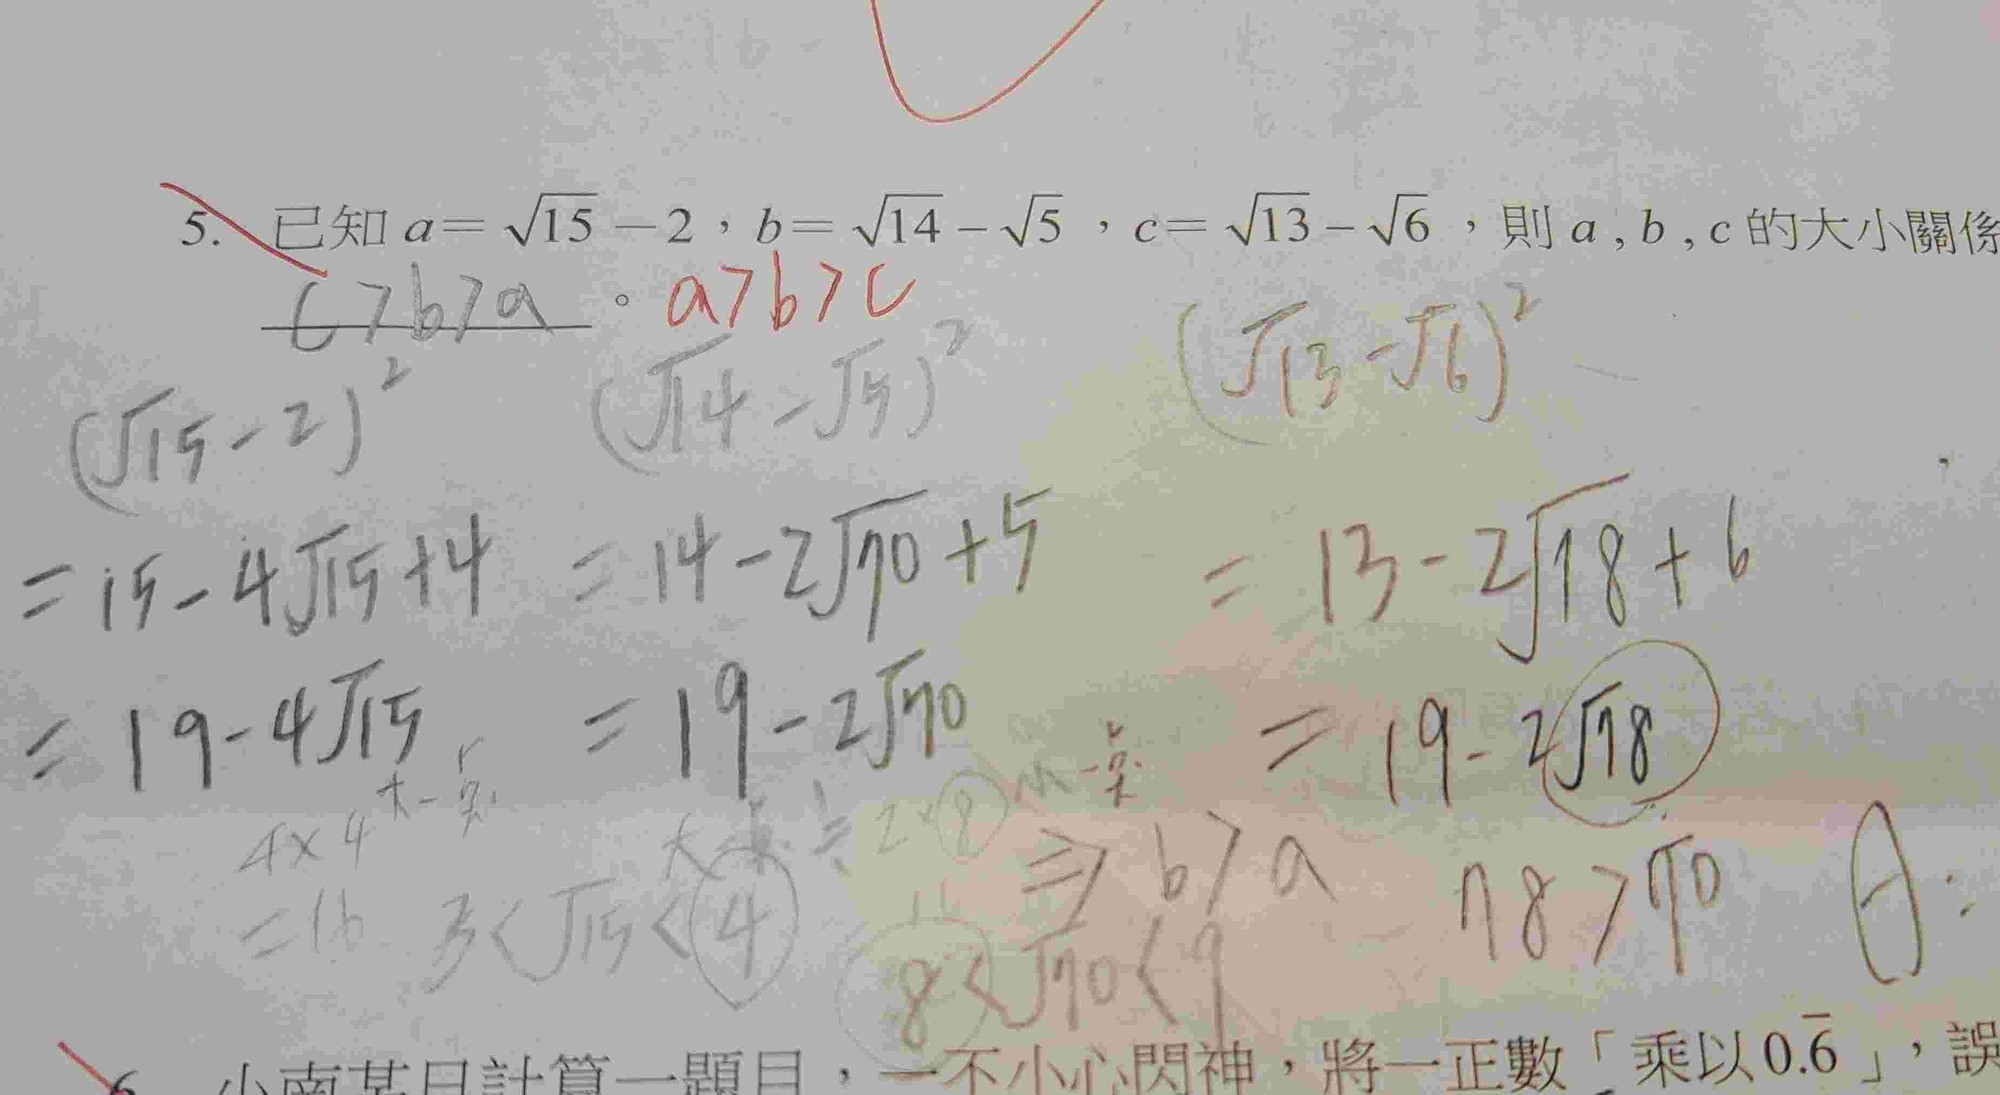 5. 已知 a = √15 − 2，b = √14 − √5，c = √13 − √6，則 a , b , c 的大小關係
c > b > a 。 a > b > c
(√15 - 2)² (√14 - √5)² (√13 - √6)²
= 15 - 4√15 + 4 = 14 - 2√70 + 5 = 13 - 2√78 + 6
= 19 - 4√15 = 19 - 2√70 = 19 - 2√78
4×4 2×8 ⇒ b > a 78 > 70
= 16 3 < √15 < 4
8 < √70 < 9
6. 小南某日計算一題目，一不小心閃神，將一正數「乘以0.6̅」，誤